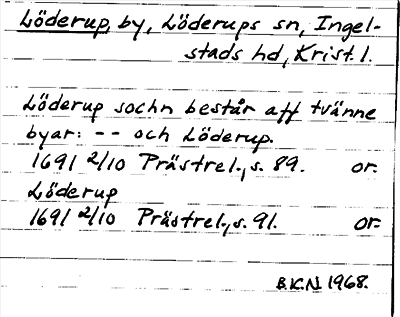 Löderup, by, Löderups sn, Ingel-
stads hd, Krist. l.
Löderup sochn består aff tvänne
byar: -- och Löderup.
1691 2/10 Prästrel., s. 89. or.
Löderup
1691 2/10 Prästrel., s. 91. or.
B.K.N. 1968.